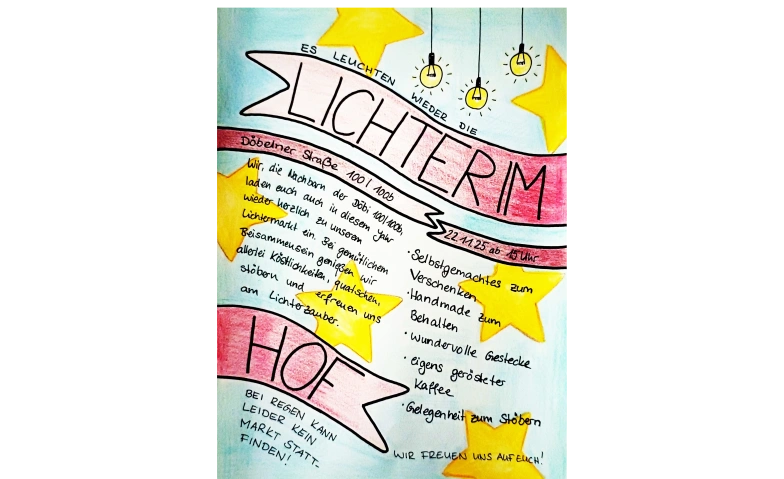 ES LEUCHTEN WIEDER DIE
LICHTER IM
Döbelner Straße 100 / 100b
22.11.25 ab 15 Uhr
Wir, die Nachbarn der Döbi 100/100b,
laden euch auch in diesem Jahr
wieder herzlich zu unserem
Lichtermarkt ein. Bei gemütlichem
Beisammensein genießen wir
allerlei Köstlichkeiten, quatschen,
stöbern und erfreuen uns
am Lichterzauber.
· Selbstgemachtes zum
Verschenken
· Handmade zum
Behalten
· wundervolle Gestecke
· eigens gerösteter
Kaffee
· Gelegenheit zum Stöbern
HOF
BEI REGEN KANN
LEIDER KEIN
MARKT STATT-
FINDEN!
WIR FREUEN UNS AUF EUCH!